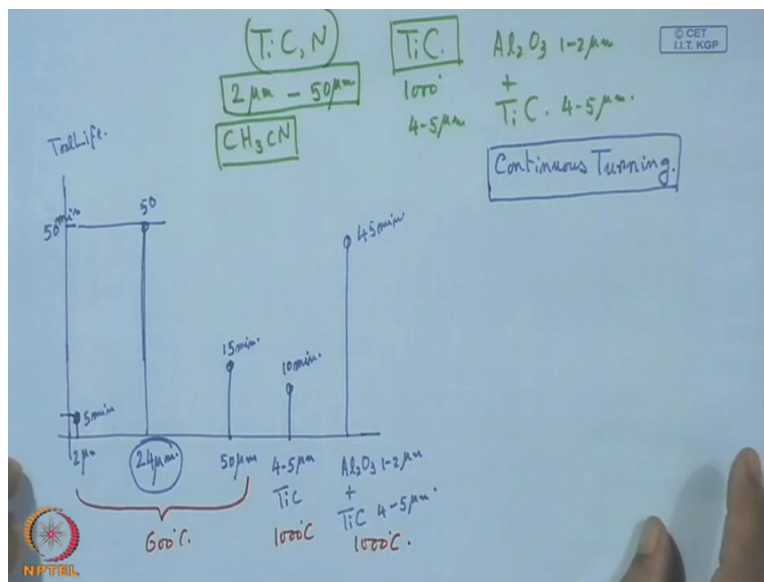 (TiC, N)
2 μm – 50μm
CH₃CN
TiC.
1000°
4-5μm
Al₂O₃ 1-2μm
+
TiC. 4-5μm.
Continuous Turning.
© CET
I.I.T. KGP
Tool Life.
50 min
50
5 min
15 min.
10 min.
45 min
2μm
24μm.
50μm
4-5μm
TiC
1000°C
Al₂O₃ 1-2μm
+
TiC 4-5μm.
1000°C.
600°C.
NPTEL